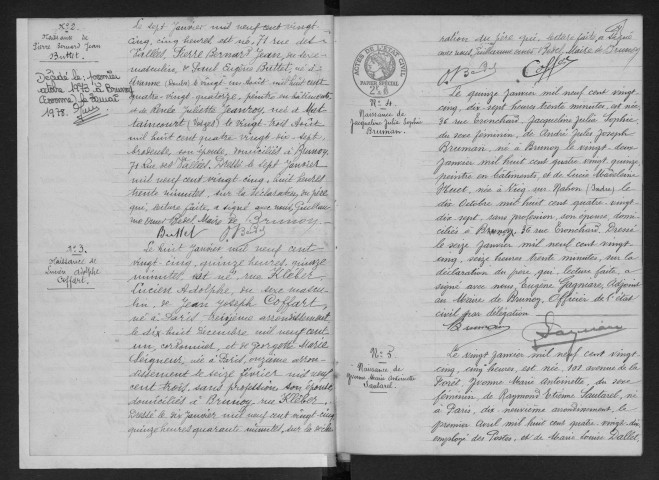 N° 2.
Naissance de
Pierre Bernard Jean
Buttet.
Le sept Janvier mil neuf cent vingt-
cinq, cinq heures est né, 71 rue des
Vallées, Pierre Bernard Jean, du sexe
masculin, de
né à
vingt en Août mil huit cent
quatre vingt quinze, peintre en bâtiments
et de Renée Juliette Jeanroy, née à Mat-
taincourt (Vosges) le vingt trois Août
mil huit cent quatre vingt dix sept,
son épouse, domiciliés à Brunoy,
71 Rue des Vallées. Dressé le sept Janvier
mil neuf cent vingt cinq, huit heures
trente minutes, sur la déclaration du père
qui, lecture faite, a signé avec nous, Guillau-
me Maire de Brunoy
Buttet
N° 3.
Naissance de
Lucien Adolphe
Coffart.
Le huit Janvier mil neuf cent
vingt-cinq, quinze heures, quinze
minutes, est né, rue Kléber,
Lucien Adolphe, du sexe mascu-
lin, de Jean Joseph Coffart,
né à Paris treizième arrondissement
le dix huit Décembre mil neuf cent
un, cordonnier, et de Georgette Marie
Seigneur, née à Paris, onzième arron-
dissement le seize Février mil neuf
cent trois, sans profession son épouse
domiciliés à Brunoy, rue Kléber.
Dressé le dix Janvier mil neuf cent vingt cinq
quinze heures quarante minutes, sur la décla-
ration du père qui, lecture faite, a signé
avec nous, Guillaume Maire de Brunoy
Coffart
ACTES DE L'ÉTAT CIVIL
PAPIER SPÉCIAL
N° 4.
Naissance de
Jacqueline Julie Sophie
Bruman.
Le quinze Janvier mil neuf cent vingt
cinq, dix sept heures trente minutes, est née,
36 rue Tronchard, Jacqueline Julie Sophie,
du sexe féminin, de André Jules Joseph
Bruman, né à Brunoy le vingt-deux
Janvier mil huit cent quatre vingt quinze,
peintre en bâtiments, et de Lucie Madeleine
Huet, née à Vicq sur Nahon (Indre) le
dix Octobre mil huit cent quatre vingt-
dix sept, sans profession, son épouse, domi-
ciliés à Brunoy, 36 rue Tronchard. Dressé
le seize Janvier mil neuf cent vingt-
cinq, seize heures trente minutes, sur la
déclaration du père qui, lecture faite, a
signé avec nous, Eugène Gagniare, Adjoint
au Maire de Brunoy, Officier de l'état
civil par délégation
Bruman
Gagniare
N° 5
Naissance de
Yvonne Marie Antoinette
Sautarel.
Le vingt Janvier mil neuf cent vingt-
cinq, cinq heures est née, 101 avenue de la
Forêt, Yvonne Marie Antoinette, du sexe
féminin de Raymond Etienne Sautarel, né
à Paris, dix neuvième arrondissement, le
premier Avril mil huit cent quatre vingt-dix
employé des Postes, et de Marie Louise Dallet,